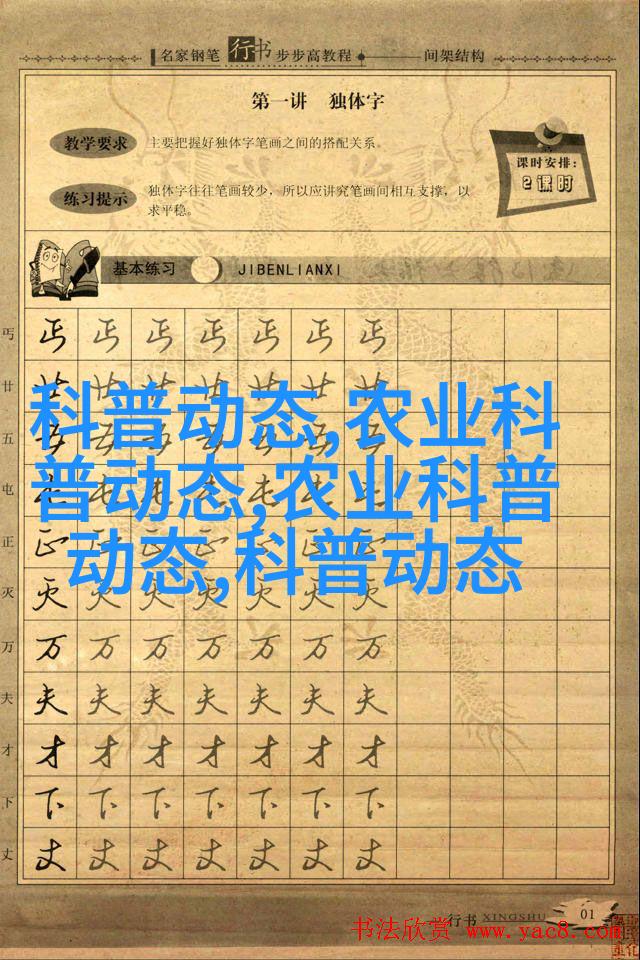 名家钢笔 行书 步步高教程 间架结构
第一讲 独体字
教学要求 主要把握好独体字笔画之间的搭配关系。
课时安排:
2课时
练习提示 独体字往往笔画较少，所以应讲究笔画间相互支撑，以
求平稳。
基本练习 JIBENLIANXI
丐 丐 丐 丐 丐 丐 丐 丐
廿 廿 廿 廿 廿 廿 廿 廿
科普动态,农业科
五 五 五 五 五 五 五 五
普动态,农业科普
屯 屯 屯 屯 屯 屯 屯 屯
动态,科普动态
正 正 正 正 正 正 正
灭 灭 灭 灭 灭 灭 灭 灭
万 万 万 万 万 万 万 万
夫 夫 夫 夫 夫 夫 夫 夫
才 才 才 才 才 才 才 才
下 下 下 下 下 下 下 下
丈 丈 丈 丈 丈 丈 丈 丈
行书 XINGSHU 01
书法欣赏 www.yac8.com